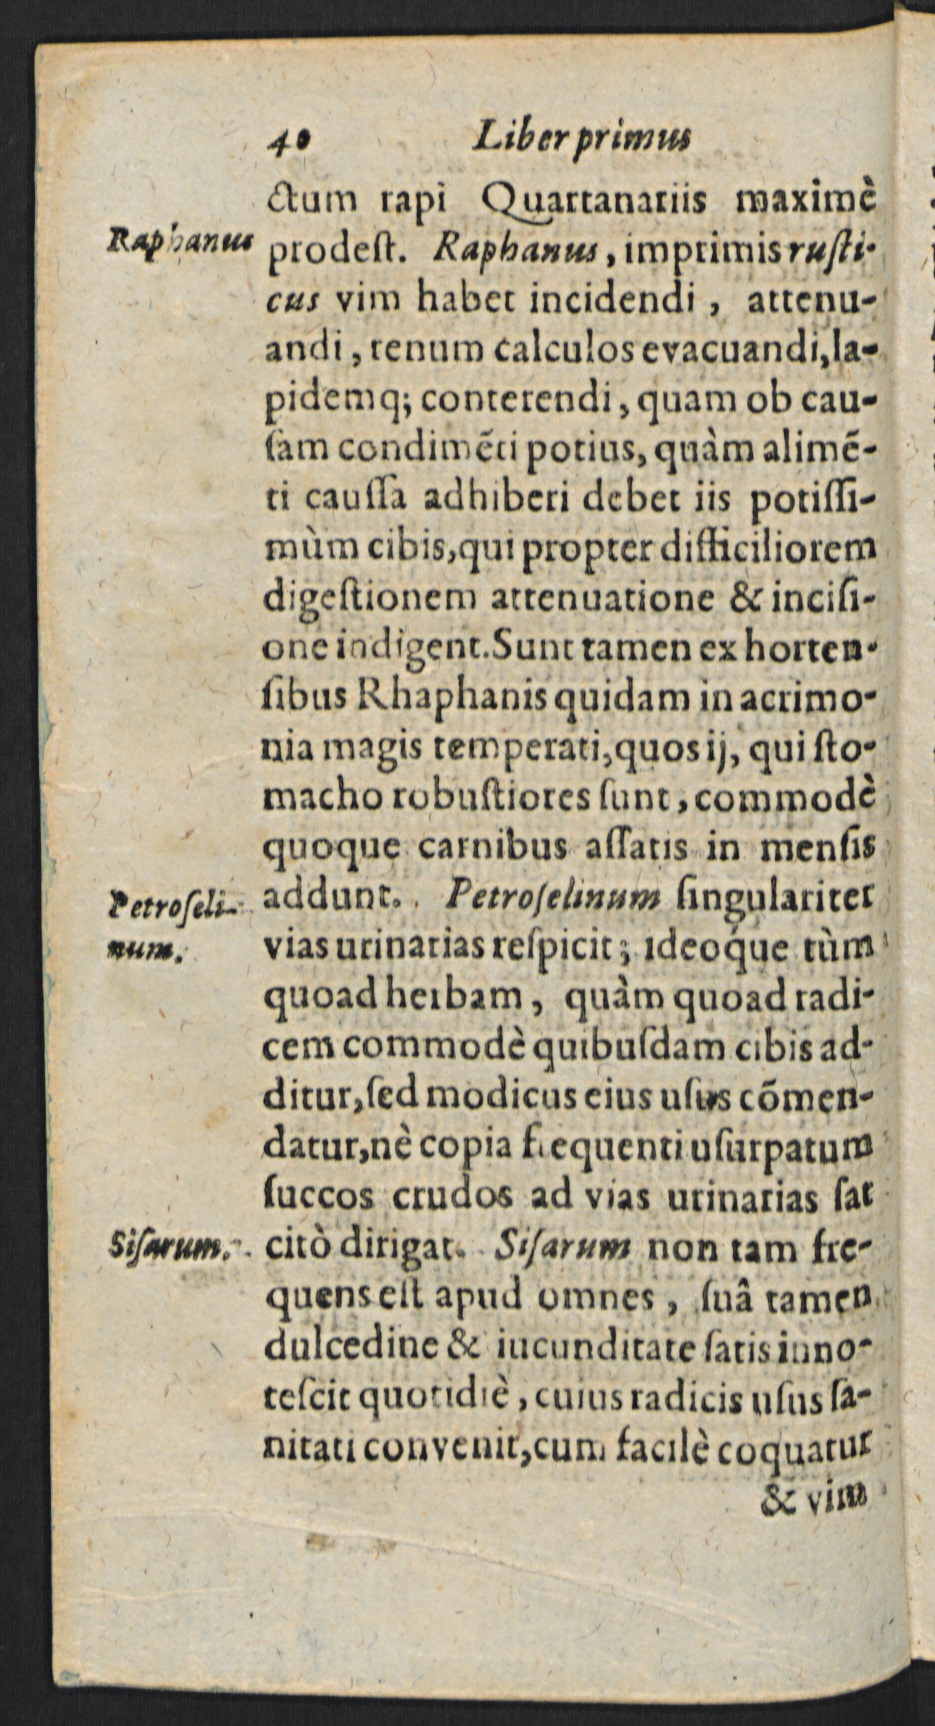 40 Liber primus
ctum rapi Quartanariis maximè
Raphanus
prodeſt. Raphanus, imprimis ruſti-
cus vim habet incidendi, attenu-
andi, renum calculos evacuandi, la-
pidemq; conterendi, quam ob cau-
ſam condimẽti potius, quàm alimẽ-
ti cauſſa adhiberi debet iis potiſſi-
mùm cibis, qui propter difficiliorem
digeſtionem attenuatione & inciſi-
one indigent. Sunt tamen ex horten-
ſibus Rhaphanis quidam in acrimo-
nia magis temperati, quos ij, qui ſto-
macho robuſtiores ſunt, commodè
quoque carnibus aſſatis in menſis
Petroſeli-
num.
addunt. Petroſelinum ſingulariter
vias urinarias reſpicit; ideoq́ue tùm
quoad herbam, quàm quoad radi-
cem commodè quibuſdam cibis ad-
ditur, ſed modicus eius uſus cõmen-
datur, nè copia frequenti uſurpatum
ſuccos crudos ad vias urinarias ſat
Siſarum.
citò dirigat. Siſarum non tam fre-
quens eſt apud omnes, ſuâ tamen
dulcedine & iucunditate ſatis inno-
teſcit quotidiè, cuius radicis uſus ſa-
nitati convenit, cum facilè coquatur
& vim